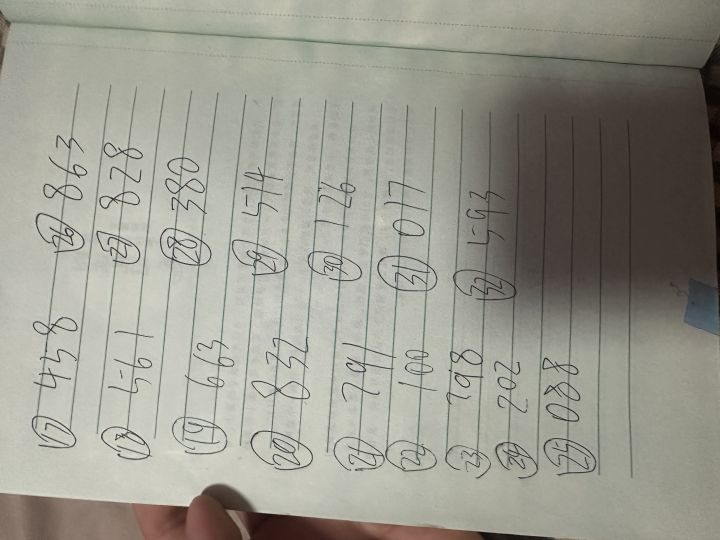 ⑰ 458 ㉖ 863
⑱ 561 ㉗ 828
⑲ 663 ㉘ 380
⑳ 832 ㉙ 514
㉑ 791 ㉚ 126
㉒ 100 ㉛ 017
㉓ 798 ㉜ 593
㉔ 202
㉕ 088